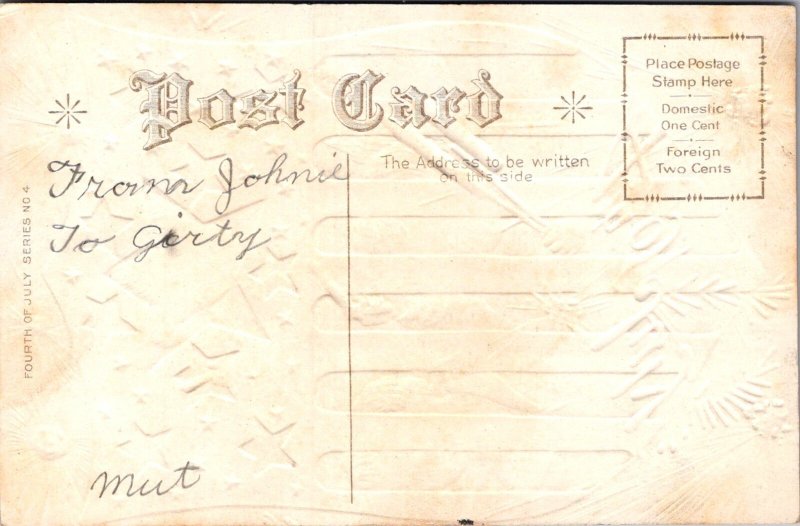 Post Card
Place Postage
Stamp Here
Domestic
One Cent
Foreign
Two Cents
The Address to be written
on this side
From Johnie
To Girty
Mut
FOURTH OF JULY SERIES NO 4